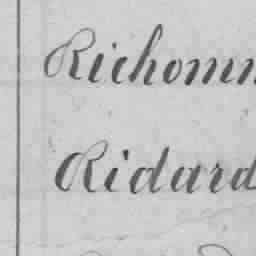 Richomm
Ridard